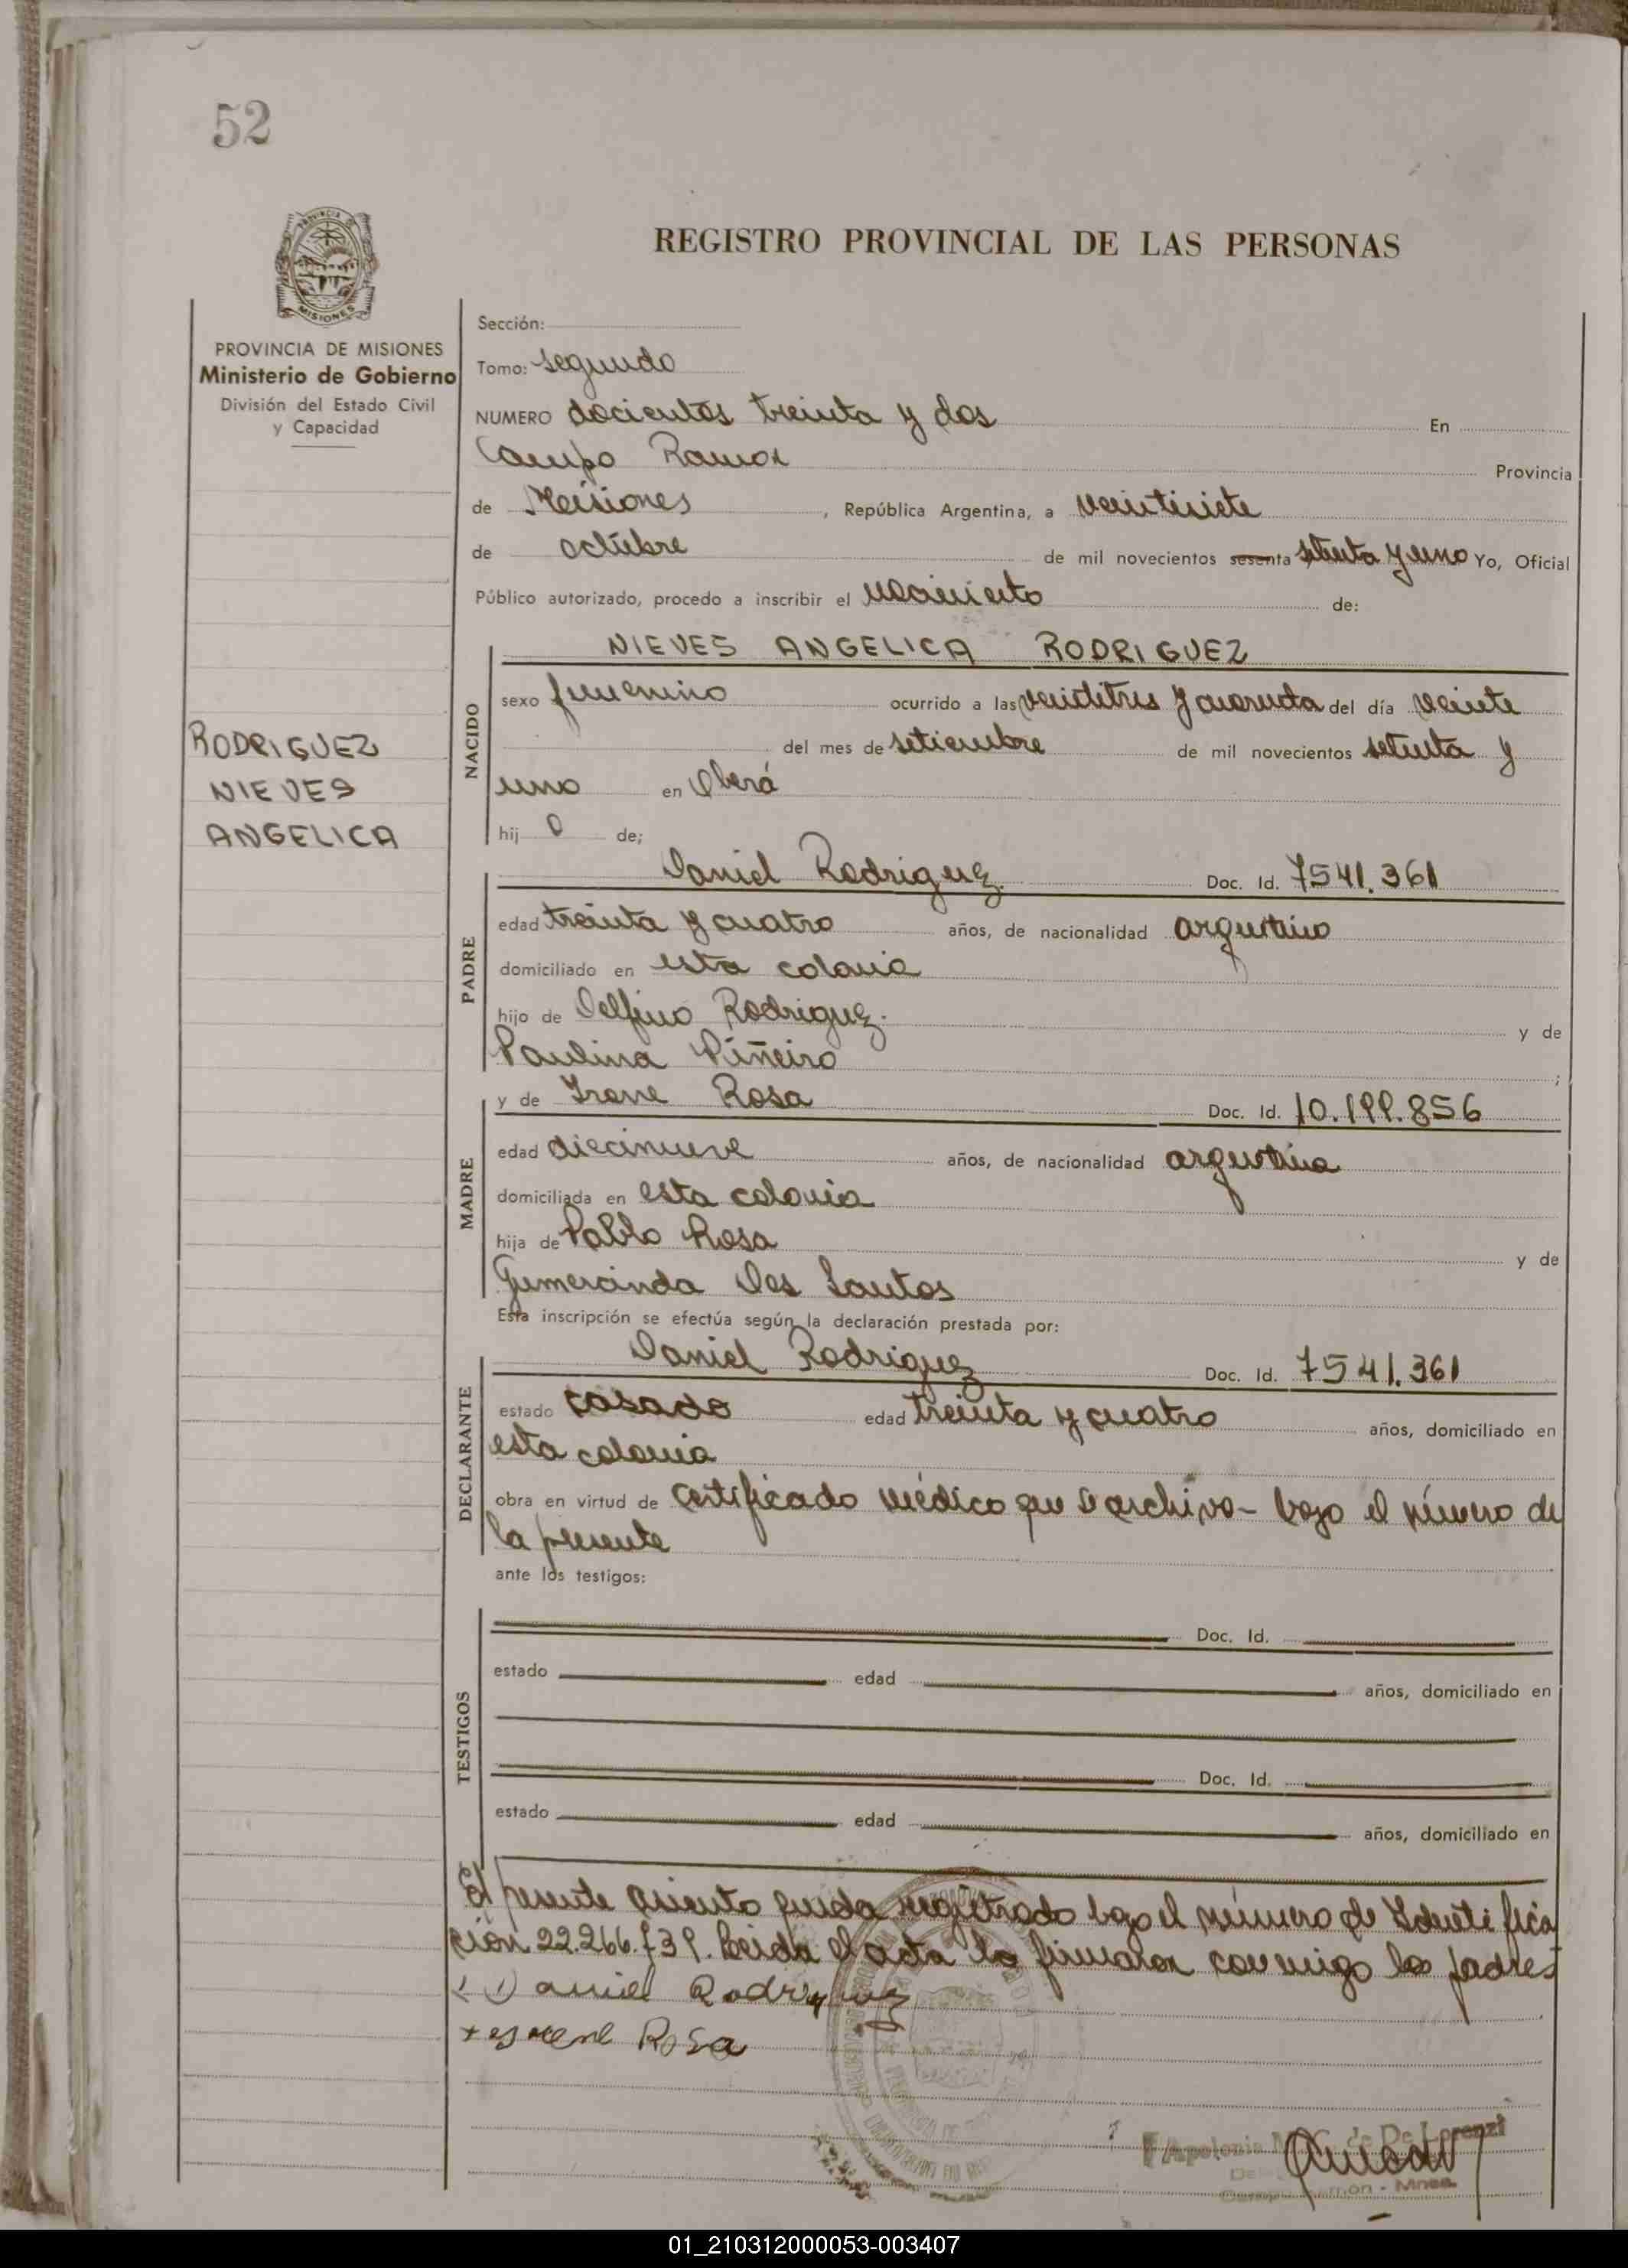 52
REGISTRO PROVINCIAL DE LAS PERSONAS
PROVINCIA DE MISIONES
Ministerio de Gobierno
División del Estado Civil
y Capacidad
RODRIGUEZ
NIEVES
ANGELICA
Sección:
Tomo: segundo
NUMERO docientos treinta y dos En
Campo Ramon Provincia
de Misiones, República Argentina, a veintisiete
de octubre de mil novecientos sesenta setenta y uno Yo, Oficial
Público autorizado, procedo a inscribir el nacimiento de:
NACIDO
NIEVES ANGELICA RODRIGUEZ
sexo femenino ocurrido a las veintitres y cuarenta del día veinte
del mes de setiembre de mil novecientos setenta y
uno en Oberá
hij a de;
PADRE
Daniel Rodriguez Doc. Id. 7541.361
edad treinta y cuatro años, de nacionalidad argentino
domiciliado en esta colonia
hijo de Delfino Rodriguez. y de
Paulina Piñeiro ;
MADRE
y de Irene Rosa Doc. Id. 10.199.856
edad diecinueve años, de nacionalidad argentina
domiciliada en esta colonia
hija de Pablo Rosa y de
Gumercinda Dos Santos
Esta inscripción se efectúa según la declaración prestada por:
DECLARANTE
Daniel Rodriguez Doc. Id. 7541.361
estado casado edad treinta y cuatro años, domiciliado en
esta colonia
obra en virtud de certificado médico que se archiva - bajo el número de
la presente
ante los testigos:
TESTIGOS
Doc. Id.
estado edad años, domiciliado en
Doc. Id.
estado edad años, domiciliado en
El presente asiento queda registrado bajo el número de Identifica
ción 22.266.739. Leida el acta la firmaron conmigo los padres
Daniel Rodriguez
Rosa
Apolonia de De Lorenzi
01_210312000053-003407